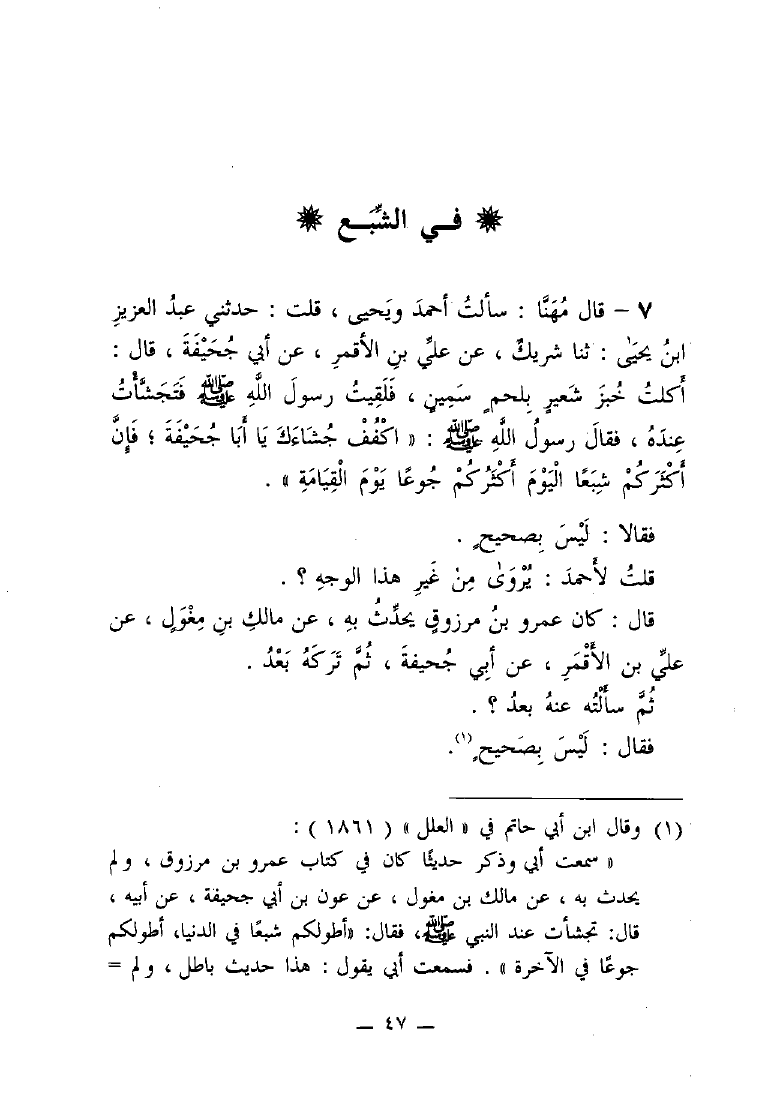 في الشِّبَـع
٧ – قال مُهَنَّا : سألتُ أحمدَ ويَحيى ، قلت : حدثني عبدُ العزيزِ
ابنُ يحيَىٰ : ثنا شريكٌ ، عن عليِّ بنِ الأقمرِ ، عن أبي جُحَيْفَةَ ، قال :
أكلتُ خُبزَ شَعيرٍ بِلحمٍ سَمِينٍ ، فَلَقِيتُ رسولَ اللَّهِ ﷺ فَتَجَشَّأْتُ
عِندَهُ ، فقالَ رسولُ اللَّهِ ﷺ : « اكْفُفْ جُشَاءَكَ يَا أَبَا جُحَيْفَةَ ؛ فَإِنَّ
أَكْثَرَكُمْ شِبَعًا الْيَوْمَ أَكْثَرُكُمْ جُوعًا يَوْمَ الْقِيَامَةِ » .
فقالا : لَيْسَ بِصحيحٍ .
قلتُ لأَحمدَ : يُرْوَىٰ مِنْ غَيرِ هذا الوجهِ ؟ .
قال : كان عمرو بنُ مرزوقٍ يحدِّثُ بهِ ، عن مالكِ بنِ مِغْوَلٍ ، عن
عليِّ بن الأَقْمَرِ ، عن أبِي جُحيفةَ ، ثُمَّ تَرَكَهُ بَعْدُ .
ثُمَّ سألْتُه عنهُ بعدُ ؟ .
فقال : لَيْسَ بِصَحيحٍ(١).
(١) وقال ابن أبي حاتم في « العلل » ( ١٨٦١ ) :
« سمعت أبي وذكر حديثًا كان في كتاب عمرو بن مرزوق ، ولم
يحدث به ، عن مالك بن مغول ، عن عون بن أبي جحيفة ، عن أبيه ،
قال: تجشأت عند النبي ﷺ، فقال: «أطولكم شبعًا في الدنيا، أطولكم
جوعًا في الآخرة » . فسمعت أبي يقول : هذا حديث باطل ، ولم =
— ٤٧ —